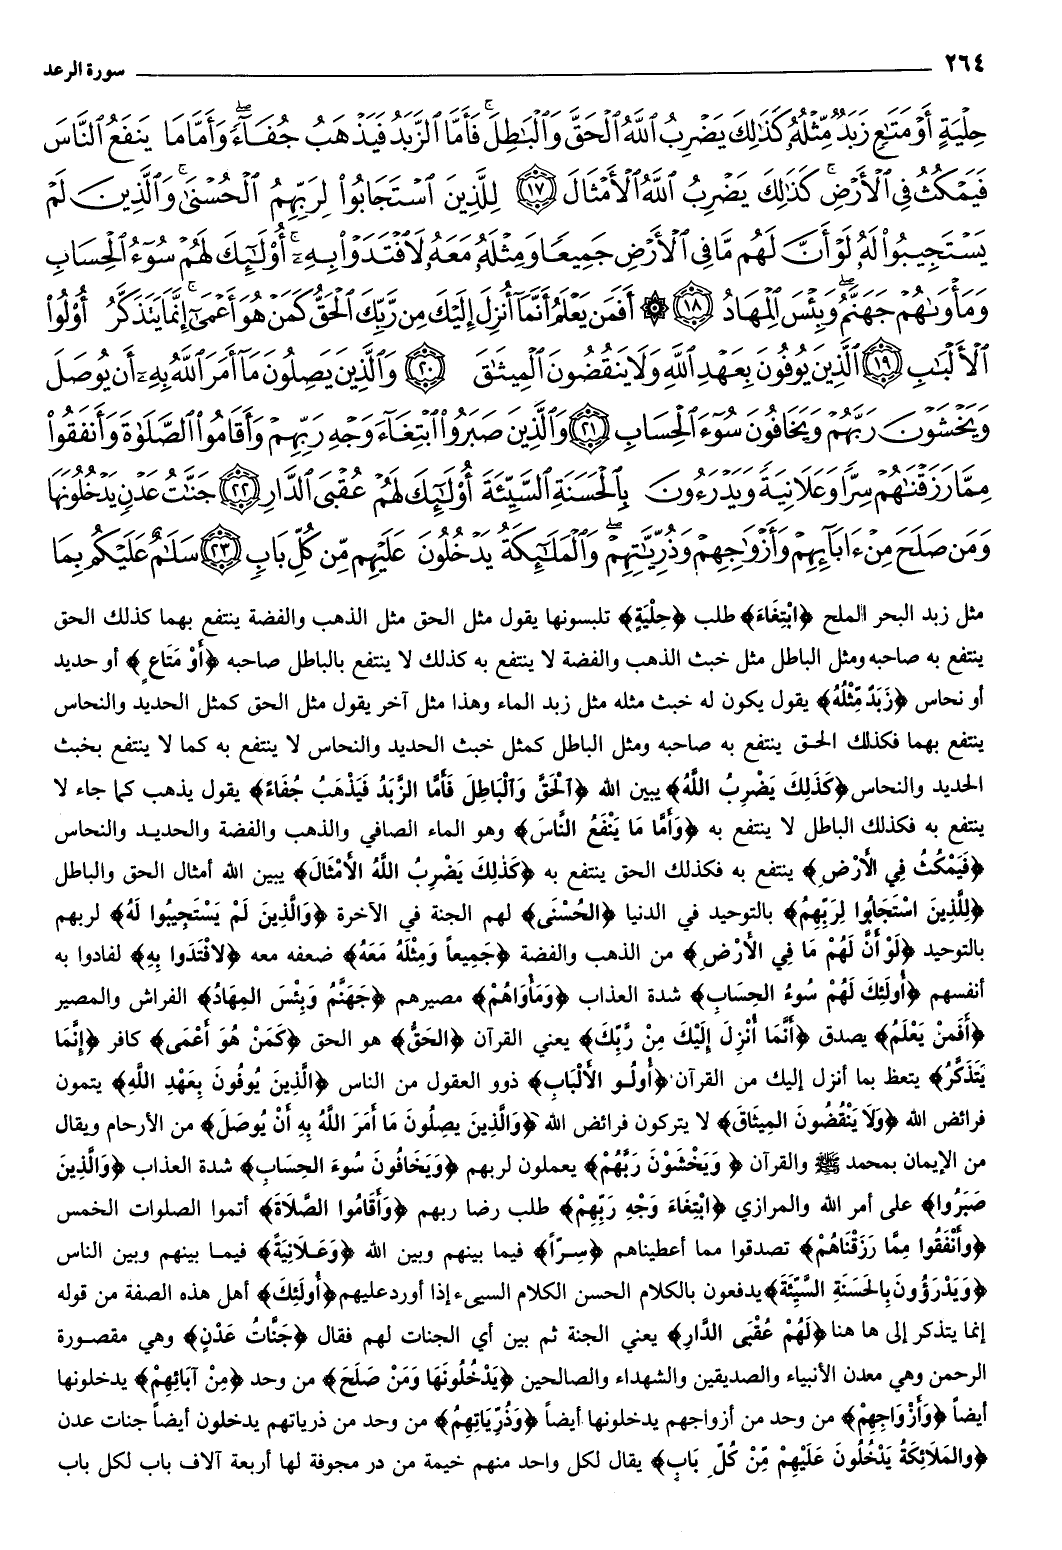 ٢٦٤ سورة الرعد
حِلْيَةٍ أَوْ مَتَٰعٍ زَبَدٌ مِّثْلُهُۥ كَذَٰلِكَ يَضْرِبُ ٱللَّهُ ٱلْحَقَّ وَٱلْبَٰطِلَ ۚ فَأَمَّا ٱلزَّبَدُ فَيَذْهَبُ جُفَآءً ۖ وَأَمَّا مَا يَنفَعُ ٱلنَّاسَ
فَيَمْكُثُ فِى ٱلْأَرْضِ ۚ كَذَٰلِكَ يَضْرِبُ ٱللَّهُ ٱلْأَمْثَالَ ١٧ لِلَّذِينَ ٱسْتَجَابُوا۟ لِرَبِّهِمُ ٱلْحُسْنَىٰ ۚ وَٱلَّذِينَ لَمْ
يَسْتَجِيبُوا۟ لَهُۥ لَوْ أَنَّ لَهُم مَّا فِى ٱلْأَرْضِ جَمِيعًا وَمِثْلَهُۥ مَعَهُۥ لَٱفْتَدَوْا۟ بِهِۦٓ ۚ أُو۟لَٰٓئِكَ لَهُمْ سُوٓءُ ٱلْحِسَابِ
وَمَأْوَىٰهُمْ جَهَنَّمُ ۖ وَبِئْسَ ٱلْمِهَادُ ١٨ ۞ أَفَمَن يَعْلَمُ أَنَّمَآ أُنزِلَ إِلَيْكَ مِن رَّبِّكَ ٱلْحَقُّ كَمَنْ هُوَ أَعْمَىٰٓ ۚ إِنَّمَا يَتَذَكَّرُ أُو۟لُوا۟
ٱلْأَلْبَٰبِ ١٩ ٱلَّذِينَ يُوفُونَ بِعَهْدِ ٱللَّهِ وَلَا يَنقُضُونَ ٱلْمِيثَٰقَ ٢٠ وَٱلَّذِينَ يَصِلُونَ مَآ أَمَرَ ٱللَّهُ بِهِۦٓ أَن يُوصَلَ
وَيَخْشَوْنَ رَبَّهُمْ وَيَخَافُونَ سُوٓءَ ٱلْحِسَابِ ٢١ وَٱلَّذِينَ صَبَرُوا۟ ٱبْتِغَآءَ وَجْهِ رَبِّهِمْ وَأَقَامُوا۟ ٱلصَّلَوٰةَ وَأَنفَقُوا۟
مِمَّا رَزَقْنَٰهُمْ سِرًّا وَعَلَانِيَةً وَيَدْرَءُونَ بِٱلْحَسَنَةِ ٱلسَّيِّئَةَ أُو۟لَٰٓئِكَ لَهُمْ عُقْبَى ٱلدَّارِ ٢٢ جَنَّٰتُ عَدْنٍ يَدْخُلُونَهَا
وَمَن صَلَحَ مِنْ ءَابَآئِهِمْ وَأَزْوَٰجِهِمْ وَذُرِّيَّٰتِهِمْ ۖ وَٱلْمَلَٰٓئِكَةُ يَدْخُلُونَ عَلَيْهِم مِّن كُلِّ بَابٍ ٢٣ سَلَٰمٌ عَلَيْكُم بِمَا
مثل زبد البحر الملح ﴿ابْتِغَاءَ﴾ طلب ﴿حِلْيَةٍ﴾ تلبسونها يقول مثل الحق مثل الذهب والفضة ينتفع بهما كذلك الحق
ينتفع به صاحبه ومثل الباطل مثل خبث الذهب والفضة لا ينتفع به كذلك لا ينتفع بالباطل صاحبه ﴿أَوْ مَتَاعٍ﴾ أو حديد
أو نحاس ﴿زَبَدٌ مِّثْلُهُ﴾ يقول يكون له خبث مثله مثل زبد الماء وهذا مثل آخر يقول مثل الحق كمثل الحديد والنحاس
ينتفع بهما فكذلك الحق ينتفع به صاحبه ومثل الباطل كمثل خبث الحديد والنحاس لا ينتفع به كما لا ينتفع بخبث
الحديد والنحاس ﴿كَذَلِكَ يَضْرِبُ اللَّهُ﴾ يبين الله ﴿ٱلْحَقَّ وَٱلْبَاطِلَ فَأَمَّا الزَّبَدُ فَيَذْهَبُ جُفَاءً﴾ يقول يذهب كما جاء لا
ينتفع به فكذلك الباطل لا ينتفع به ﴿وَأَمَّا مَا يَنْفَعُ النَّاسَ﴾ وهو الماء الصافي والذهب والفضة والحديد والنحاس
﴿فَيَمْكُثُ فِي الأَرْضِ﴾ ينتفع به فكذلك الحق ينتفع به ﴿كَذَلِكَ يَضْرِبُ اللَّهُ الأَمْثَالَ﴾ يبين الله أمثال الحق والباطل
﴿لِلَّذِينَ اسْتَجَابُوا لِرَبِّهِمُ﴾ بالتوحيد في الدنيا ﴿الحُسْنَى﴾ لهم الجنة في الآخرة ﴿وَالَّذِينَ لَمْ يَسْتَجِيبُوا لَهُ﴾ لربهم
بالتوحيد ﴿لَوْ أَنَّ لَهُمْ مَا فِي الأَرْضِ﴾ من الذهب والفضة ﴿جَمِيعاً وَمِثْلَهُ مَعَهُ﴾ ضعفه معه ﴿لافْتَدَوا بِهِ﴾ لفادوا به
أنفسهم ﴿أُولَئِكَ لَهُمْ سُوءُ الحِسَابِ﴾ شدة العذاب ﴿وَمَأْوَاهُمْ﴾ مصيرهم ﴿جَهَنَّمُ وَبِئْسَ المِهَادُ﴾ الفراش والمصير
﴿أَفَمَنْ يَعْلَمُ﴾ يصدق ﴿أَنَّمَا أُنْزِلَ إِلَيْكَ مِنْ رَّبِّكَ﴾ يعني القرآن ﴿الحَقُّ﴾ هو الحق ﴿كَمَنْ هُوَ أَعْمَى﴾ كافر ﴿إِنَّمَا
يَتَذَكَّرُ﴾ يتعظ بما أنزل إليك من القرآن ﴿أُولُو الأَلْبَابِ﴾ ذوو العقول من الناس ﴿الَّذِينَ يُوفُونَ بِعَهْدِ اللَّهِ﴾ يتمون
فرائض الله ﴿وَلَا يَنْقُضُونَ المِيثَاقَ﴾ لا يتركون فرائض الله ﴿وَالَّذِينَ يصِلُونَ مَا أَمَرَ اللَّهُ بِهِ أَنْ يُوصَلَ﴾ من الأرحام ويقال
من الإيمان بمحمد ﷺ والقرآن ﴿وَيَخْشَوْنَ رَبَّهُمْ﴾ يعملون لربهم ﴿وَيَخَافُونَ سُوءَ الحِسَابِ﴾ شدة العذاب ﴿وَالَّذِينَ
صَبَرُوا﴾ على أمر الله والمرازي ﴿ابْتِغَاءَ وَجْهِ رَبِّهِمْ﴾ طلب رضا ربهم ﴿وَأَقَامُوا الصَّلَاةَ﴾ أتموا الصلوات الخمس
﴿وأَنْفَقُوا مِمَّا رَزَقْنَاهُمْ﴾ تصدقوا مما أعطيناهم ﴿سِرّاً﴾ فيما بينهم وبين الله ﴿وَعَلَانِيَةً﴾ فيما بينهم وبين الناس
﴿وَيَدْرَؤُونَ بِالحَسَنَةِ السَّيِّئَةَ﴾ يدفعون بالكلام الحسن الكلام السيىء إذا أورد عليهم ﴿أُولَئِكَ﴾ أهل هذه الصفة من قوله
إنما يتذكر إلى ها هنا ﴿لَهُمْ عُقْبَى الدَّارِ﴾ يعني الجنة ثم بين أي الجنات لهم فقال ﴿جَنَّاتُ عَدْنٍ﴾ وهي مقصورة
الرحمن وهي معدن الأنبياء والصديقين والشهداء والصالحين ﴿يَدْخُلُونَهَا وَمَنْ صَلَحَ﴾ من وحد ﴿مِنْ آبَائِهِمْ﴾ يدخلونها
أيضاً ﴿وَأَزْوَاجِهِمْ﴾ من وحد من أزواجهم يدخلونها أيضاً ﴿وَذُرِّيَاتِهِمُ﴾ من وحد من ذرياتهم يدخلون أيضاً جنات عدن
﴿والمَلَائِكَةُ يَدْخُلُونَ عَلَيْهِمْ مِّنْ كُلِّ بَابٍ﴾ يقال لكل واحد منهم خيمة من در مجوفة لها أربعة آلاف باب لكل باب